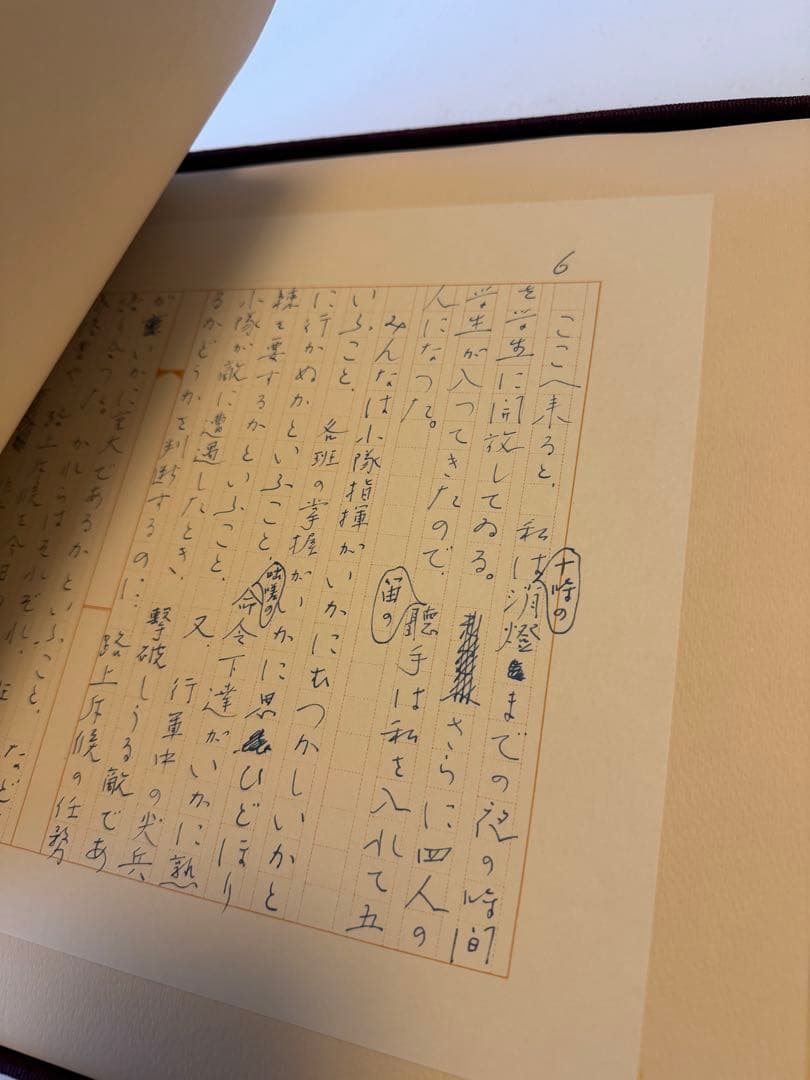 6
ここへ来ると、私は十時の消燈までの夜の時間
を学生に開放してゐる。さらに四人の
学生が入つてきたので、笛の聴手は私を入れて五
人になつた。
みんなは小隊指揮がいかにむつかしいかと
いふこと、各班の掌握がいかに思ひどほり
に行かぬかといふこと、咄嗟の命令下達がいかに熟
練を要するかといふこと、又、行軍中の尖兵
小隊が敵に遭遇したとき、撃破しうる敵であ
るかどうかを判断するのに、路上斥候の任務
がいかに重大であるかといふこと、など
合つた。かれらはそれぞれ、
路上斥候を今日の